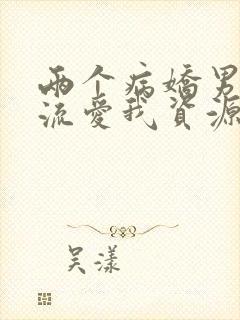 两个病嬌男
流愛我資源
吴漾